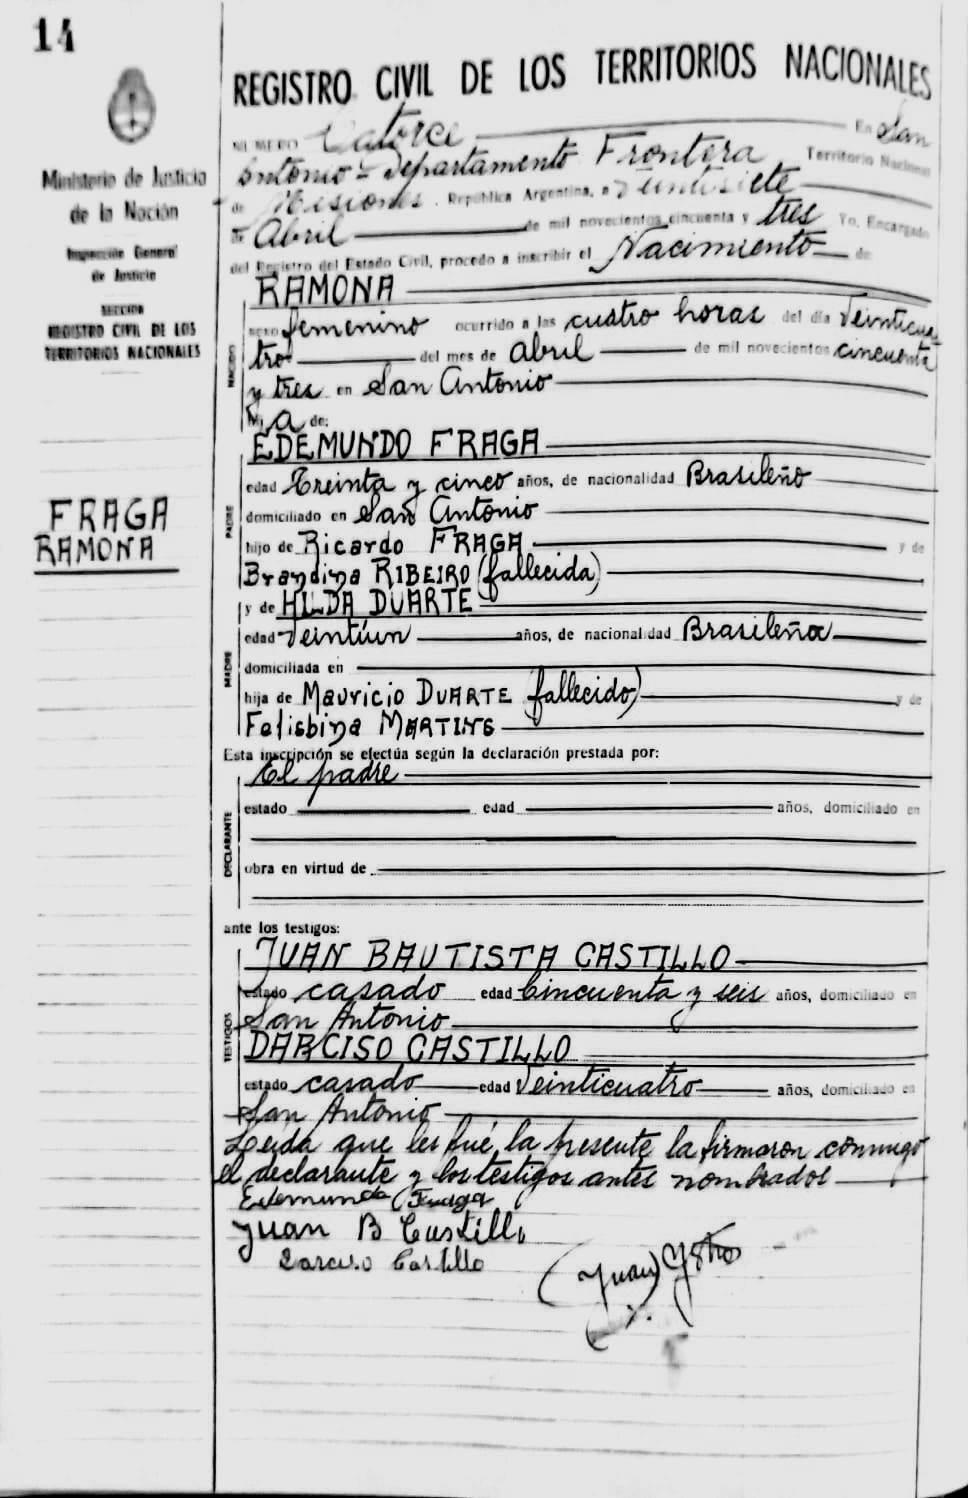 14
Ministerio de Justicia
de la Nación
Inspección General
de Justicia
SECCION
REGISTRO CIVIL DE LOS
TERRITORIOS NACIONALES
FRAGA
RAMONA
REGISTRO CIVIL DE LOS TERRITORIOS NACIONALES
NUMERO Catorce En San
Antonio - Departamento Frontera Territorio Nacional
de Misiones. República Argentina, a Veintisiete
de Abril de mil novecientos cincuenta y tres Yo, Encargado
del Registro del Estado Civil, procedo a inscribir el Nacimiento de
RAMONA
sexo femenino ocurrido a las cuatro horas del día Veinticua
tro del mes de Abril de mil novecientos cincuenta
y tres en San Antonio
NACIDO
hija de:
EDEMUNDO FRAGA
edad Treinta y cinco años, de nacionalidad Brasileño
domiciliado en San Antonio
PADRE
hijo de Ricardo FRAGA y de
Brandina RIBEIRO (fallecida)
y de HILDA DUARTE
edad Veintiun años, de nacionalidad Brasileña
domiciliada en
MADRE
hija de Mauricio DUARTE (fallecido) y de
Felisbina MARTINS
Esta inscripción se efectúa según la declaración prestada por:
El padre
estado edad años, domiciliado en
DECLARANTE
obra en virtud de
ante los testigos:
JUAN BAUTISTA CASTILLO
estado casado edad Cincuenta y seis años, domiciliado en
San Antonio
TESTIGOS
DARCISO CASTILLO
estado casado edad Veinticuatro años, domiciliado en
San Antonio
Leída que les fué la presente la firmaron conmigo
el declarante y los testigos antes nombrados
Edemundo Fraga
Juan B Castillo
Darciso Castillo
Juan